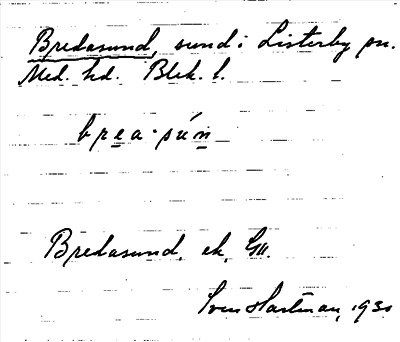 Bredasund, sund i Listerby sn.
Med. hd. Blek. l.
brea·sún
Bredasund, ek, GU.
Sven Hartman, 1930